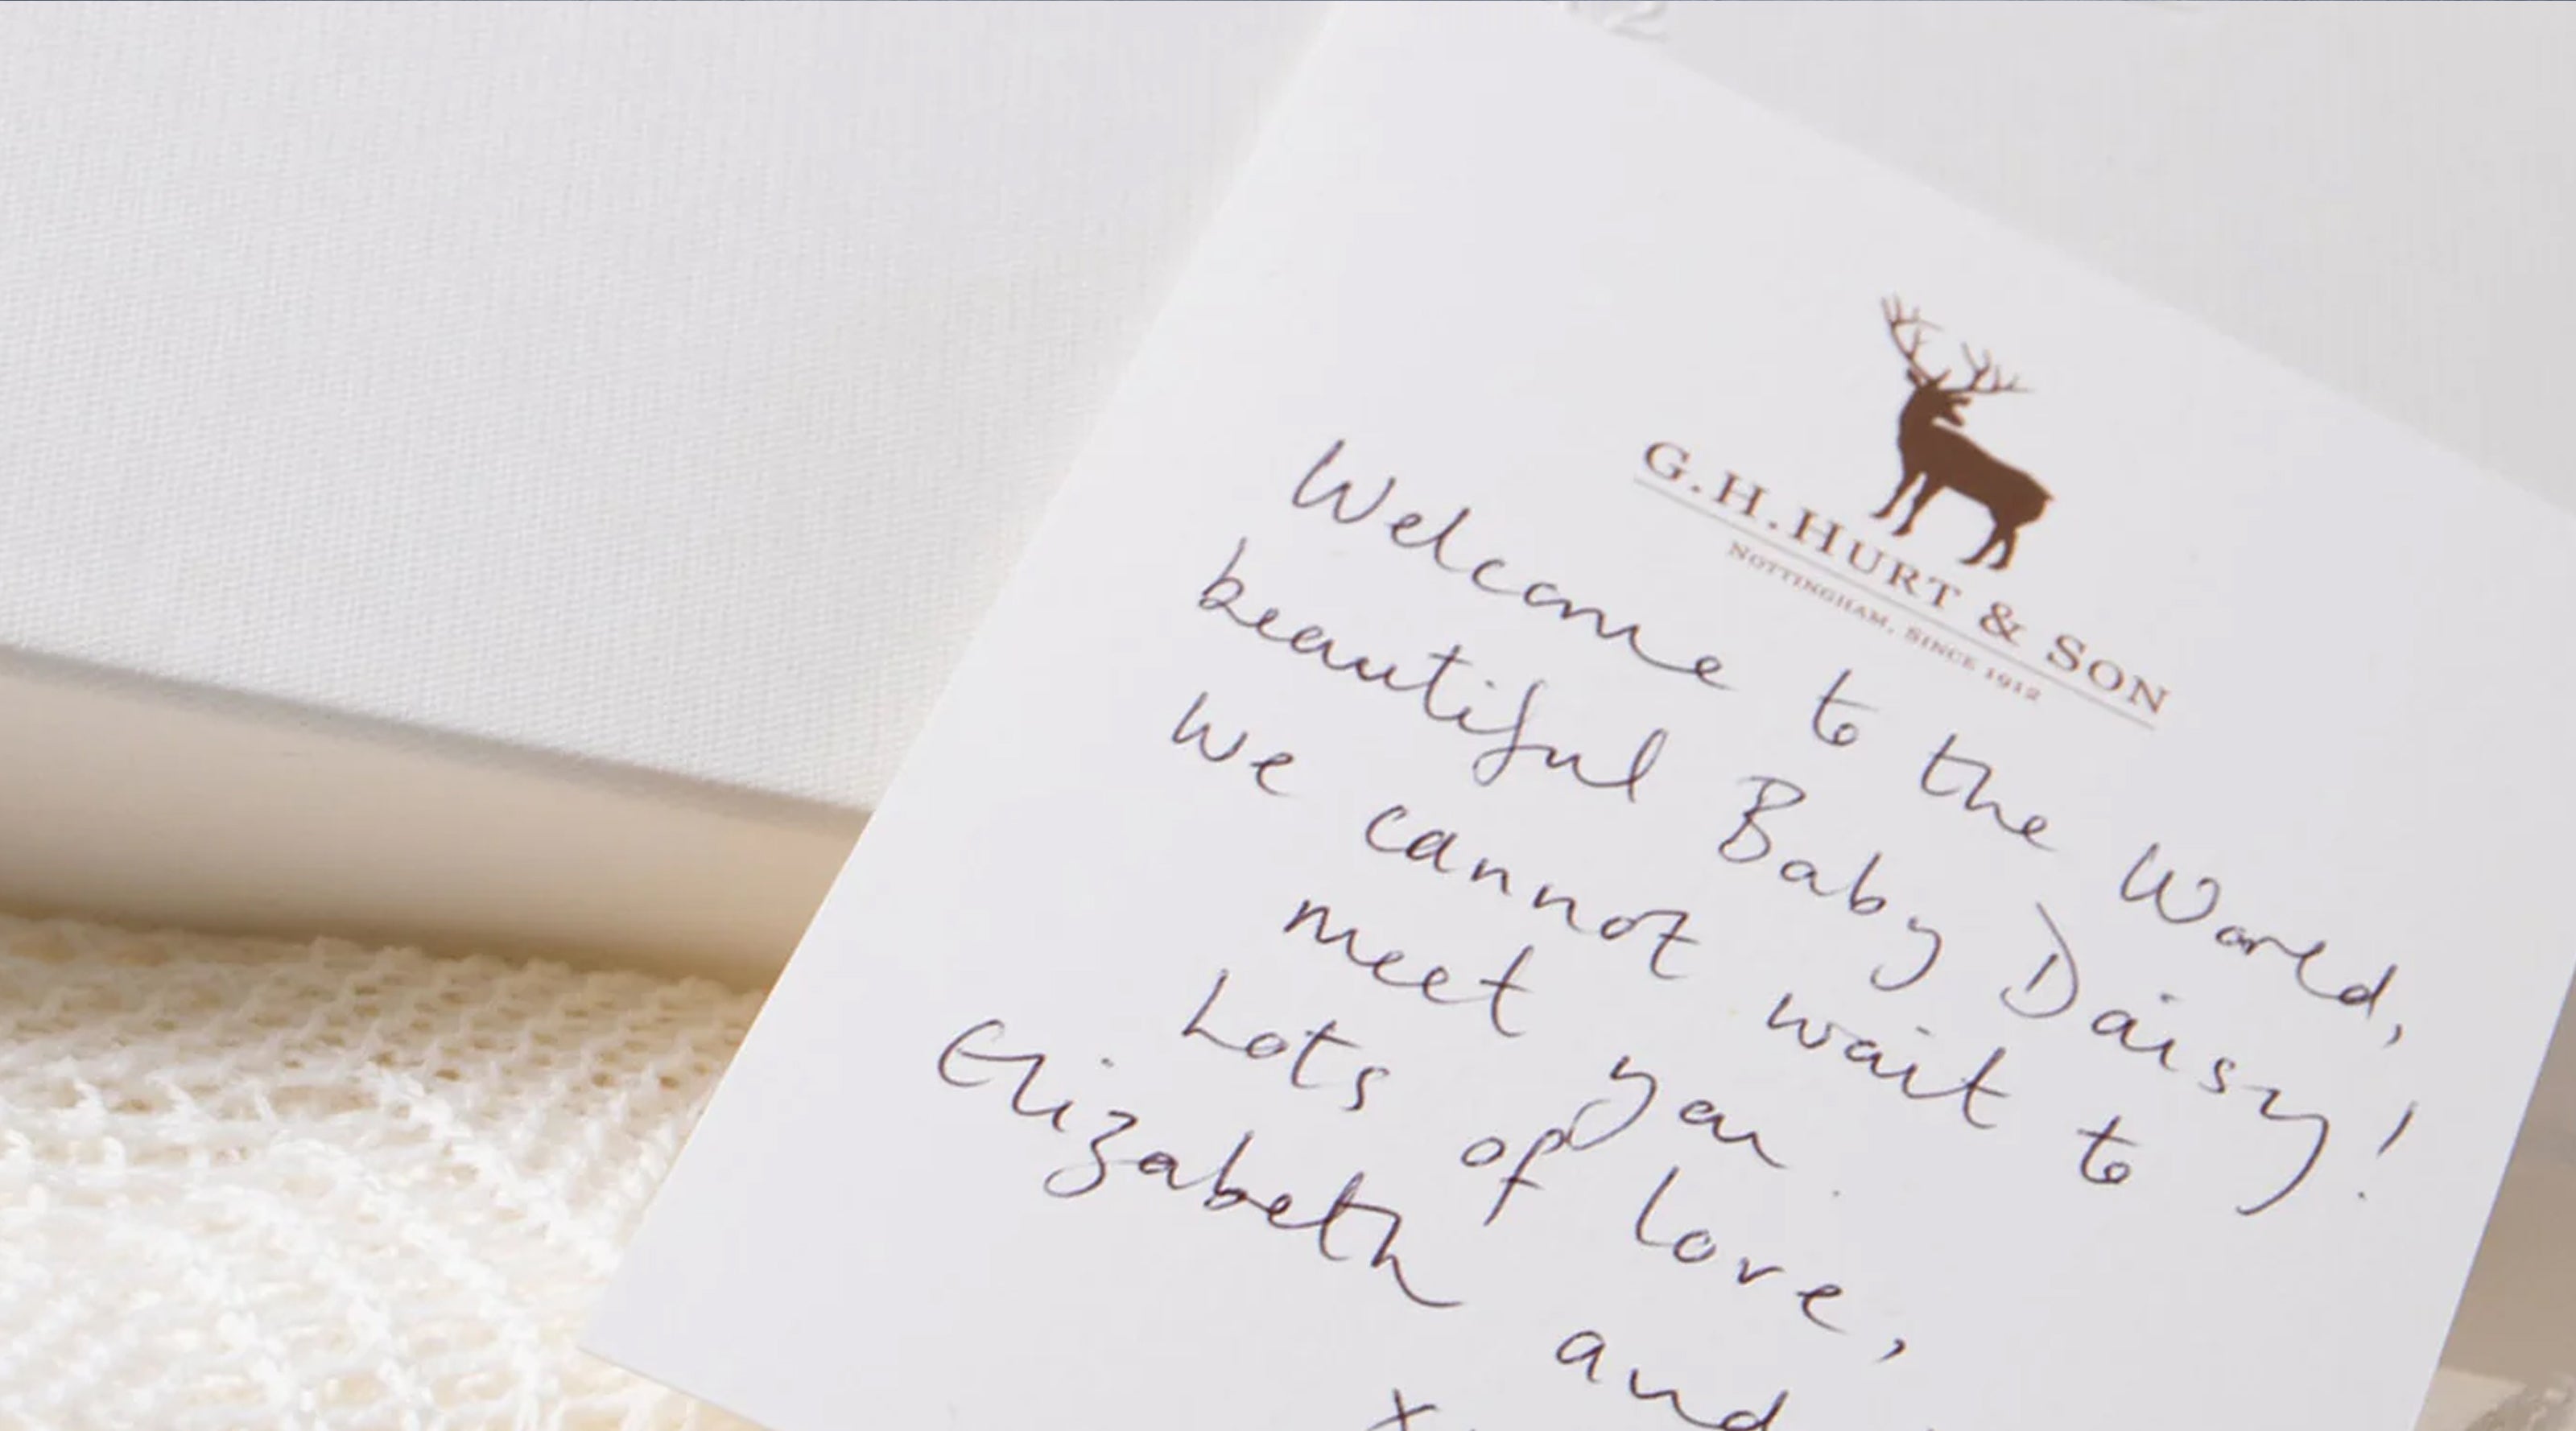 G.H.HURT & SON
NOTTINGHAM, SINCE 1912
Welcome to the World,
beautiful Baby Daisy!
We cannot wait to
meet you.
Lots of love,
Elizabeth and
x